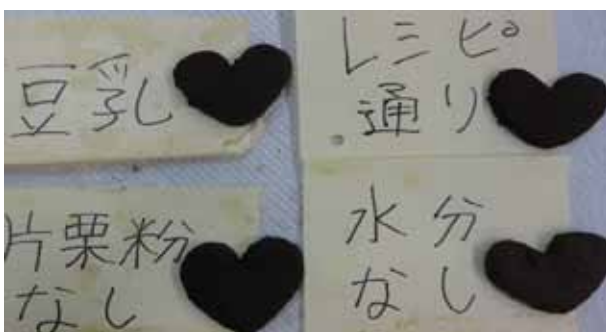 豆乳
レシピ
通り
片栗粉
なし
水分
なし